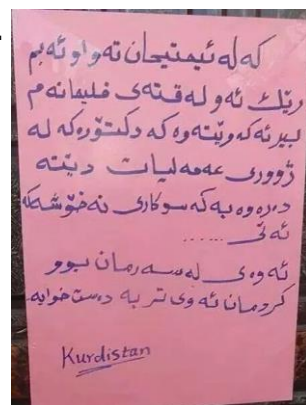 کە لە ئیمتیحان تەواو ئەبم
ڕێك ئەو لەقتەی فلیمانەم
لبیر ئەکەوێتەوە کە دکتۆرەکە لە
ژووری عەمەلیات دێتە
دەرەوە بە کەسوکاری نەخۆشەکە
ئەڵێ ......
ئەوەی لەسەرمان بوو
کردمان ئەوی تر بە دەست خوایە
Kurdistan